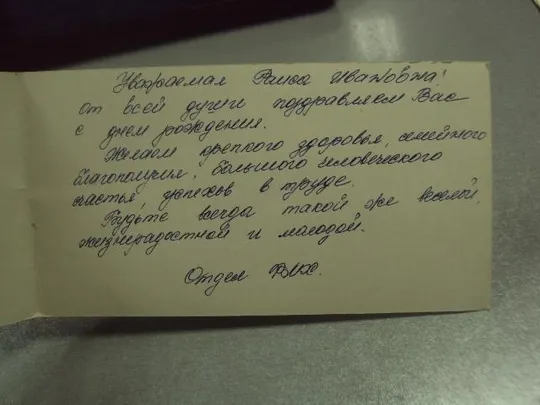 Уважаемая Раиса Ивановна!
от всей души поздравляем Вас
с днем рождения.
Желаем крепкого здоровья, семейного
благополучия, большого человеческого
счастья, успехов в труде.
Будьте всегда такой же веселой,
жизнерадостной и молодой.
Отдел